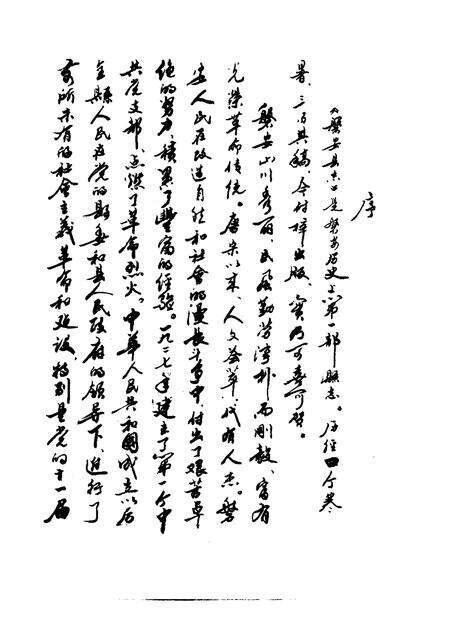 序
《磐安县志》是磐安历史上第一部县志。历经四个寒
暑、三易其稿,今付梓出版,实乃可喜可贺。
磐安山川秀丽,民风勤劳淳朴而刚毅,富有
光荣革命传统。唐宋以来,人文荟萃,代有人杰。磐
安人民在改造自然和社会的漫长斗争中,付出了艰苦卓
绝的努力,积累了丰富的经验。一九二七年建立了第一个中
共党支部,点燃了革命烈火。中华人民共和国成立以后
全县人民在党的县委和县人民政府的领导下,进行了
前所未有的社会主义革命和建设,特别是党的十一届